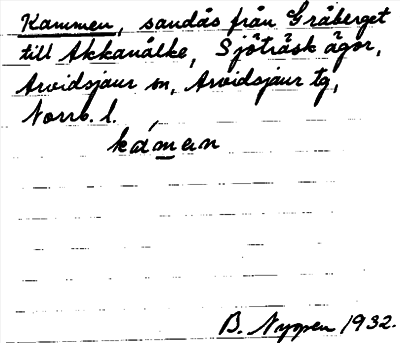 Kammen, sandås från Gråberget
till Akkanålke, Sjöträsk ägor,
Arvidsjaur sn, Arvidsjaur tg,
Norrb. l.
kámen
B. Nyppen 1932.